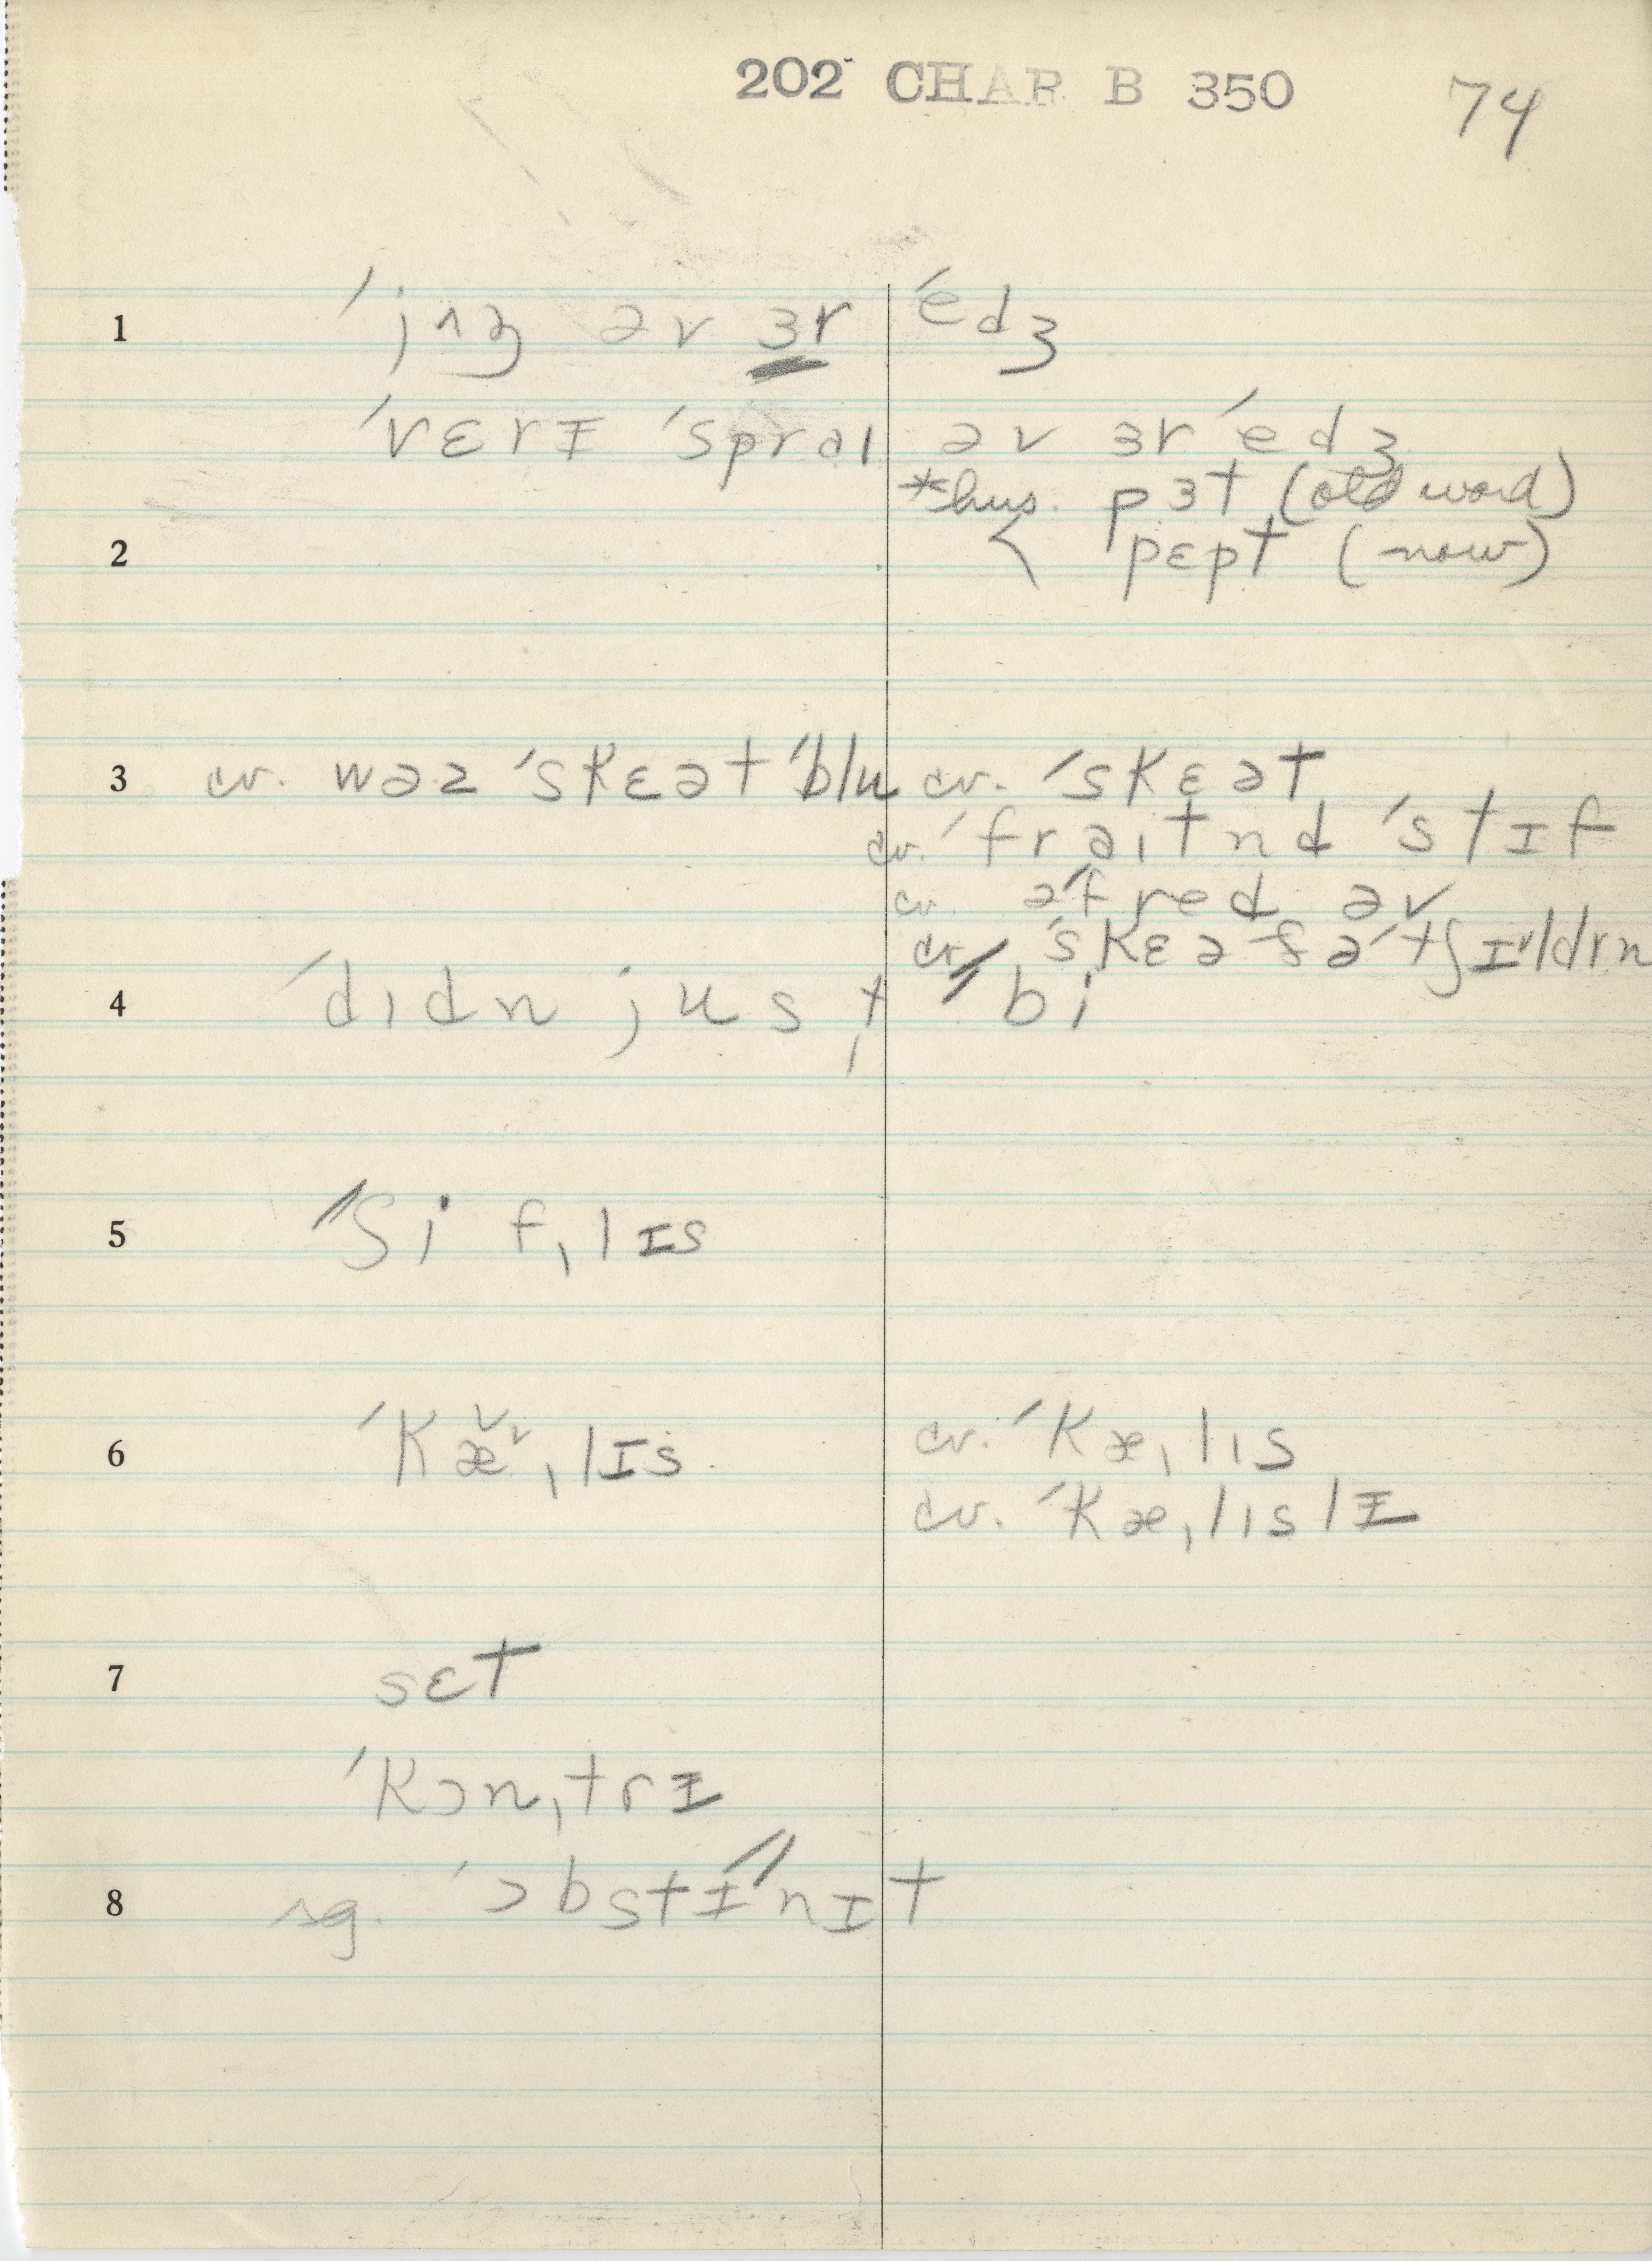 202 CHAR B 350 74
1 ˈjʌŋ əv ɜr ˈedʒ
ˈvɛrɪ ˈspral əv ɜr ˈedʒ
*hus. pɜt (old word)
2 < pɛpt (now)
3 cv. wəz ˈskɛət ˈblu cv. ˈskɛət
cv. ˈfraɪtnd ˈstɪf
cv. əˈfred əv
cv. ˈskɛə fə ˈtʃɪldrn
4 ˈdɪdn jus t ˈˈbi
5 ˈˈʃi fˌlɪs
6 ˈkæˌlɪs cv. ˈkæˌlɪs
cv. ˈkæˌlɪslɪ
7 sɛt
ˈkɔnˌtrɪ
8 sg. ˈɔbstɪˈˈnɪt